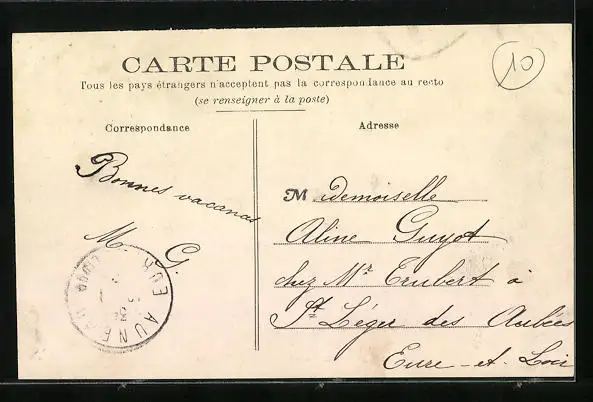 10
CARTE POSTALE
Tous les pays étrangers n'acceptent pas la correspondance au recto
(se renseigner à la poste)
Correspondance
Adresse
Bonnes vacances
M. G.
Mademoiselle
Aline Guyot
chez Mr Trubert à
St Léger des Aubées
Eure-et-Loir
AUNEAU